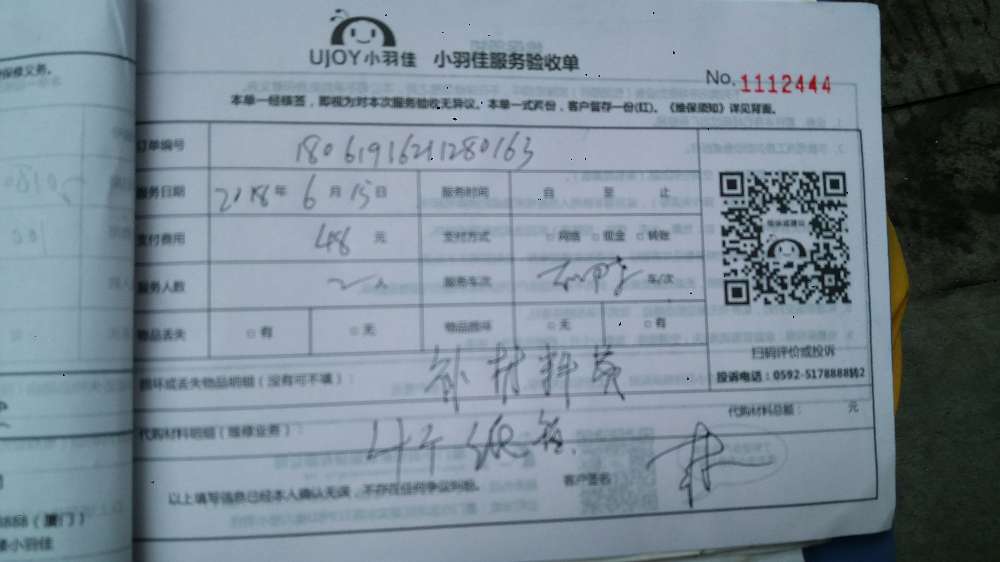 UJOY小羽佳 小羽佳服务验收单
No.1112444
本单一经签签，即视为对本次服务验收无异议。本单一式两份，客户留存一份(红)。《维保须知》详见背面。
订单编号 18061916211280163
服务日期 2018年6月15日 服务时间 自 至 止
支付费用 48元 支付方式 □网络 □现金 □转账
服务人数 二人 服务车次 车/次
物品丢失 □有 □无 物品损坏 □无 □有
扫码评价或投诉
投诉电话：0592-5178888转2
损坏或丢失物品明细（没有可不填）： 补材料费
代购材料总额： 元
代购材料明细（维修业务）： 4个纸箱
以上填写信息已经本人确认无误，不存在任何争议纠纷。 客户签名
保修义务。
8888（厦门）
小羽佳